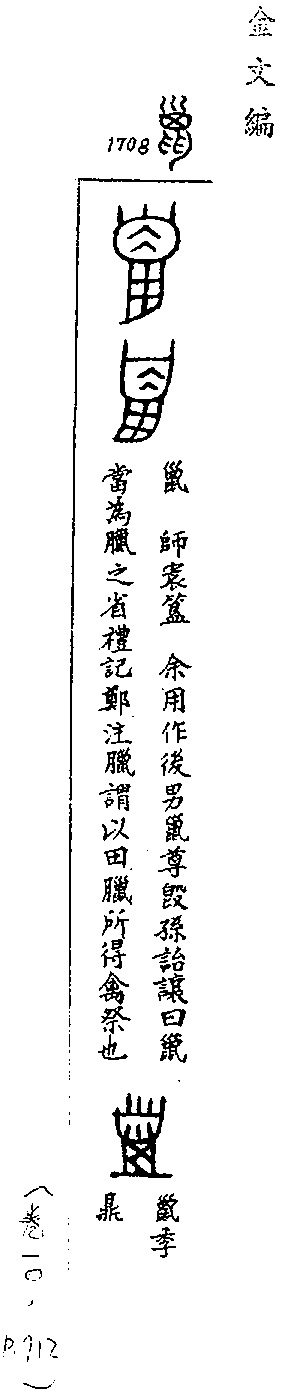 金文編
1708
巤
巤 師㝨簋 余用作後男巤尊𣪘孫詒讓曰巤
當為臘之省禮記鄭注臘謂以田臘所得禽祭也
巤季
鼎
(卷一〇,